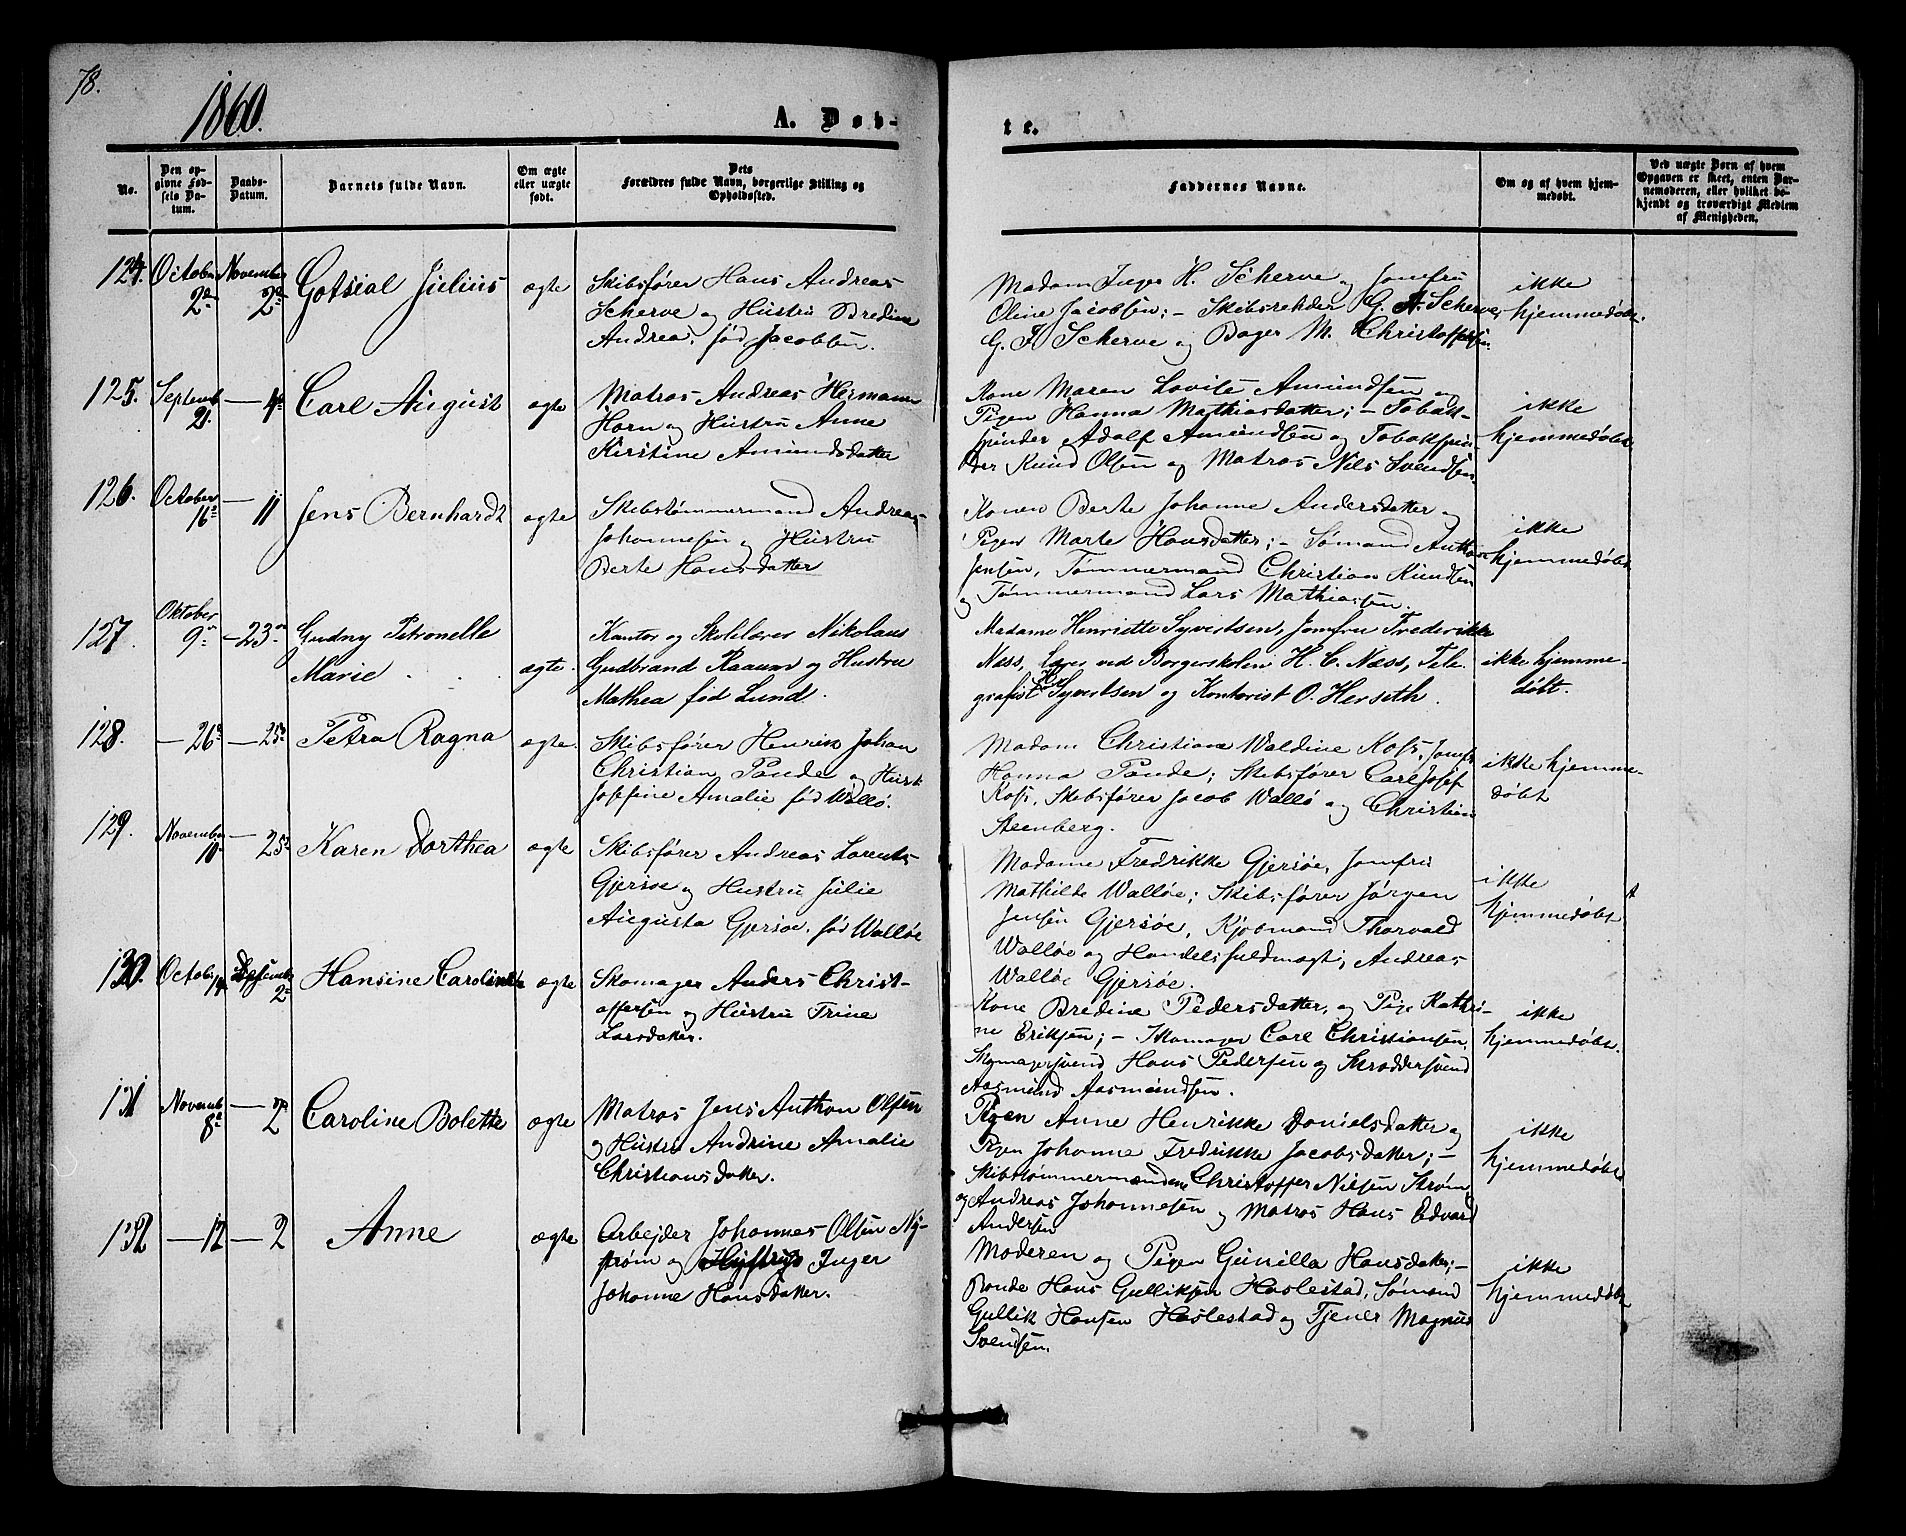 78.
1860.
A. Døb-
te.
No.
Den op-
givne Fød-
sels Da-
tum.
Daabs-
Datum.
Barnets fulde Navn.
Om ægte
eller uægte
født.
Dets
Forældres fulde Navn, borgerlige Stilling og
Opholdssted.
Faddernes Navne.
Om og af hvem hjem-
medøbt.
Ved uægte Børn af hvem
Opgaven er skeet, enten Bar-
nemoderen, eller hvilket be-
kjendt og troværdigt Medlem
af Menigheden.
124. October 2 November 2 Julius ægte
Skibsfører Hans Andreas
Scherve og Hustru Bredine
Andrea, fød Jacobsen.
Madam Inger H. Scherve og Jomfru
Oline Jacobsen; - Skibsrehder G. A. Scherve,
G. F. Scherve og Bager M. Christoffersen.
ikke
hjemmedøbt.
125. Septemb. 21 — 4 Carl August ægte
Matros Andreas Hermann
Horn og Hustru Anne
Kirstine Amundsdatter
Kone Maren Lovise Amundsen og
Pigen Hanna Mathiasdatter; - Tobak-
spinder Adolf Amundsen og Tobakspin-
der Knud Olsen og Matros Nils Svendsen.
ikke
hjemmedøbt
126. October 16 — 11 Jens Bernhardt ægte
Skibstømmermand Andreas
Johannesen og Hustru
Berte Hansdatter
Konen Berte Johanne Andersdatter og
Pigen Marte Hansdatter; - Sømand Anthon
Jensen, Tømmermand Christian Knudsen
og Tømmermand Lars Mathiasen.
ikke
hjemmedøbt
127. Oktober 9 — 23 Gudny Petronelle
Marie . . ægte.
Kantor og Skolelærer Nikolaus
Gudbrand Raaum og Hustru
Mathea fød Lund.
Madame Henriette Syvertsen, Jomfru Frederikke
Næss, Lærer ved Borgerskolen H. C. Næss, Tele-
grafist Syvertsen og Kontorist O. Herseth.
ikke hjemme-
døbt.
128. — 26 — 25 Petra Ragna ægte.
Skibsfører Henrik Johan
Christian Pande og Hust.
Josefine Amalie fød Wallø.
Madam Christiane Waldine Kofs, Jomfr
Hanna Pande; Skibsfører Carl Josef
Kofs, Skibsfører Jacob Wallø og Christian
Steenberg.
ikke hjemme-
døbt
129. November 10 — 25 Karen Dorthea ægte
Skibsfører Andreas Lorents
Gjersøe og Hustru Julie
Augusta Gjersøe, fød Walløe
Madame Fredrikke Gjersøe, Jomfru
Mathilde Walløe; Skibsfører Jørgen
Jensen Gjersøe, Kjøbmand Thorvald
Walløe og Handelsfuldmægt; Andreas
Walløe Gjersøe.
ikke
hjemmedøbt
130. Octob. 14 2 Hansine ægte
Skomager Anders Christ-
offersen og Hustru Trine
Larsdatter.
Kone Bredine Pedersdatter, og Pige Kathri-
ne Eriksen; - Skomager Carl Christiansen,
Skomagersvend Hans Pedersen og Skræddersvend
Aasmund Aasmundsen.
ikke
hjemmedøbt.
131 Novemb. 8 — 2 Caroline Bolette ægte
Matros Jens Anthon Olsen
og Hustru Andrine Amalie
Christiansdatter.
Pigen Anne Henrikke Danielsdatter og
Pigen Johanne Fredrikke Jacobsdatter; -
Skibstømmermændene Christoffer Nilsen Strøm,
og Andreas Johannesen og Matros Hans Edvard
Andersen
ikke
hjemmedøbt
132 — 12 — 2 Anne ægte
Arbejder Johannes Olsen Ny-
strøm og Inger
Johanne Hansdatter.
Moderen og Pigen Gunilla Hansdatter; -
Bonde Hans Gulliksen Haslestad, Sømand
Gullik Hansen Haslestad og Tjener Magnus
Svendsen.
ikke
hjemmedøbt